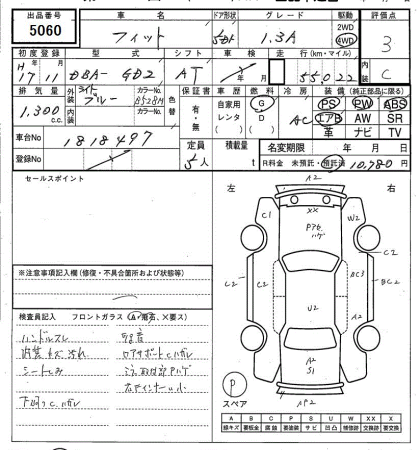 出品番号 車名 ドア形状 グレード 駆動 評価点
5060 フィット 5 1.3A 2WD 4WD 3
初度登録 型式 シフト 車検 走行(km・マイル) 内装
H 17年 11月 DBA-GD2 AT 年 月 55022 C
排気量 外装 ライトブルー カラーNo. B528M 色替 保証書 車歴 燃料 冷房 装備(純正部品に限る)
1,300 c.c. 内装 カラーNo. 有・無 自家用 レンタ ( ) G D ( ) AC PS PW ABS
エアB AW SR
革 ナビ TV
車台No 1818497 定員 5人 積載量 t 名変期限 年 月 日
登録No R料金 未預託・預託済 10,780円
セールスポイント
左 右
A2
XX
C1 W2
P7化
ハゲ
C2
C2 C2 BC3 BC2
U2
A2
S1
AP2
P
スペア
※注意事項記入欄(修復・不具合箇所および状態等)
検査員記入 フロントガラス(A・飛石、×要ス)
ハンドルスレ
内装キズ汚れ
シートしみ
下回りC、ハガレ
A B C P S U W XX X
線キズ 要板金 腐蝕 要塗装 サビ 凹凸 補修跡 交換跡 要交換